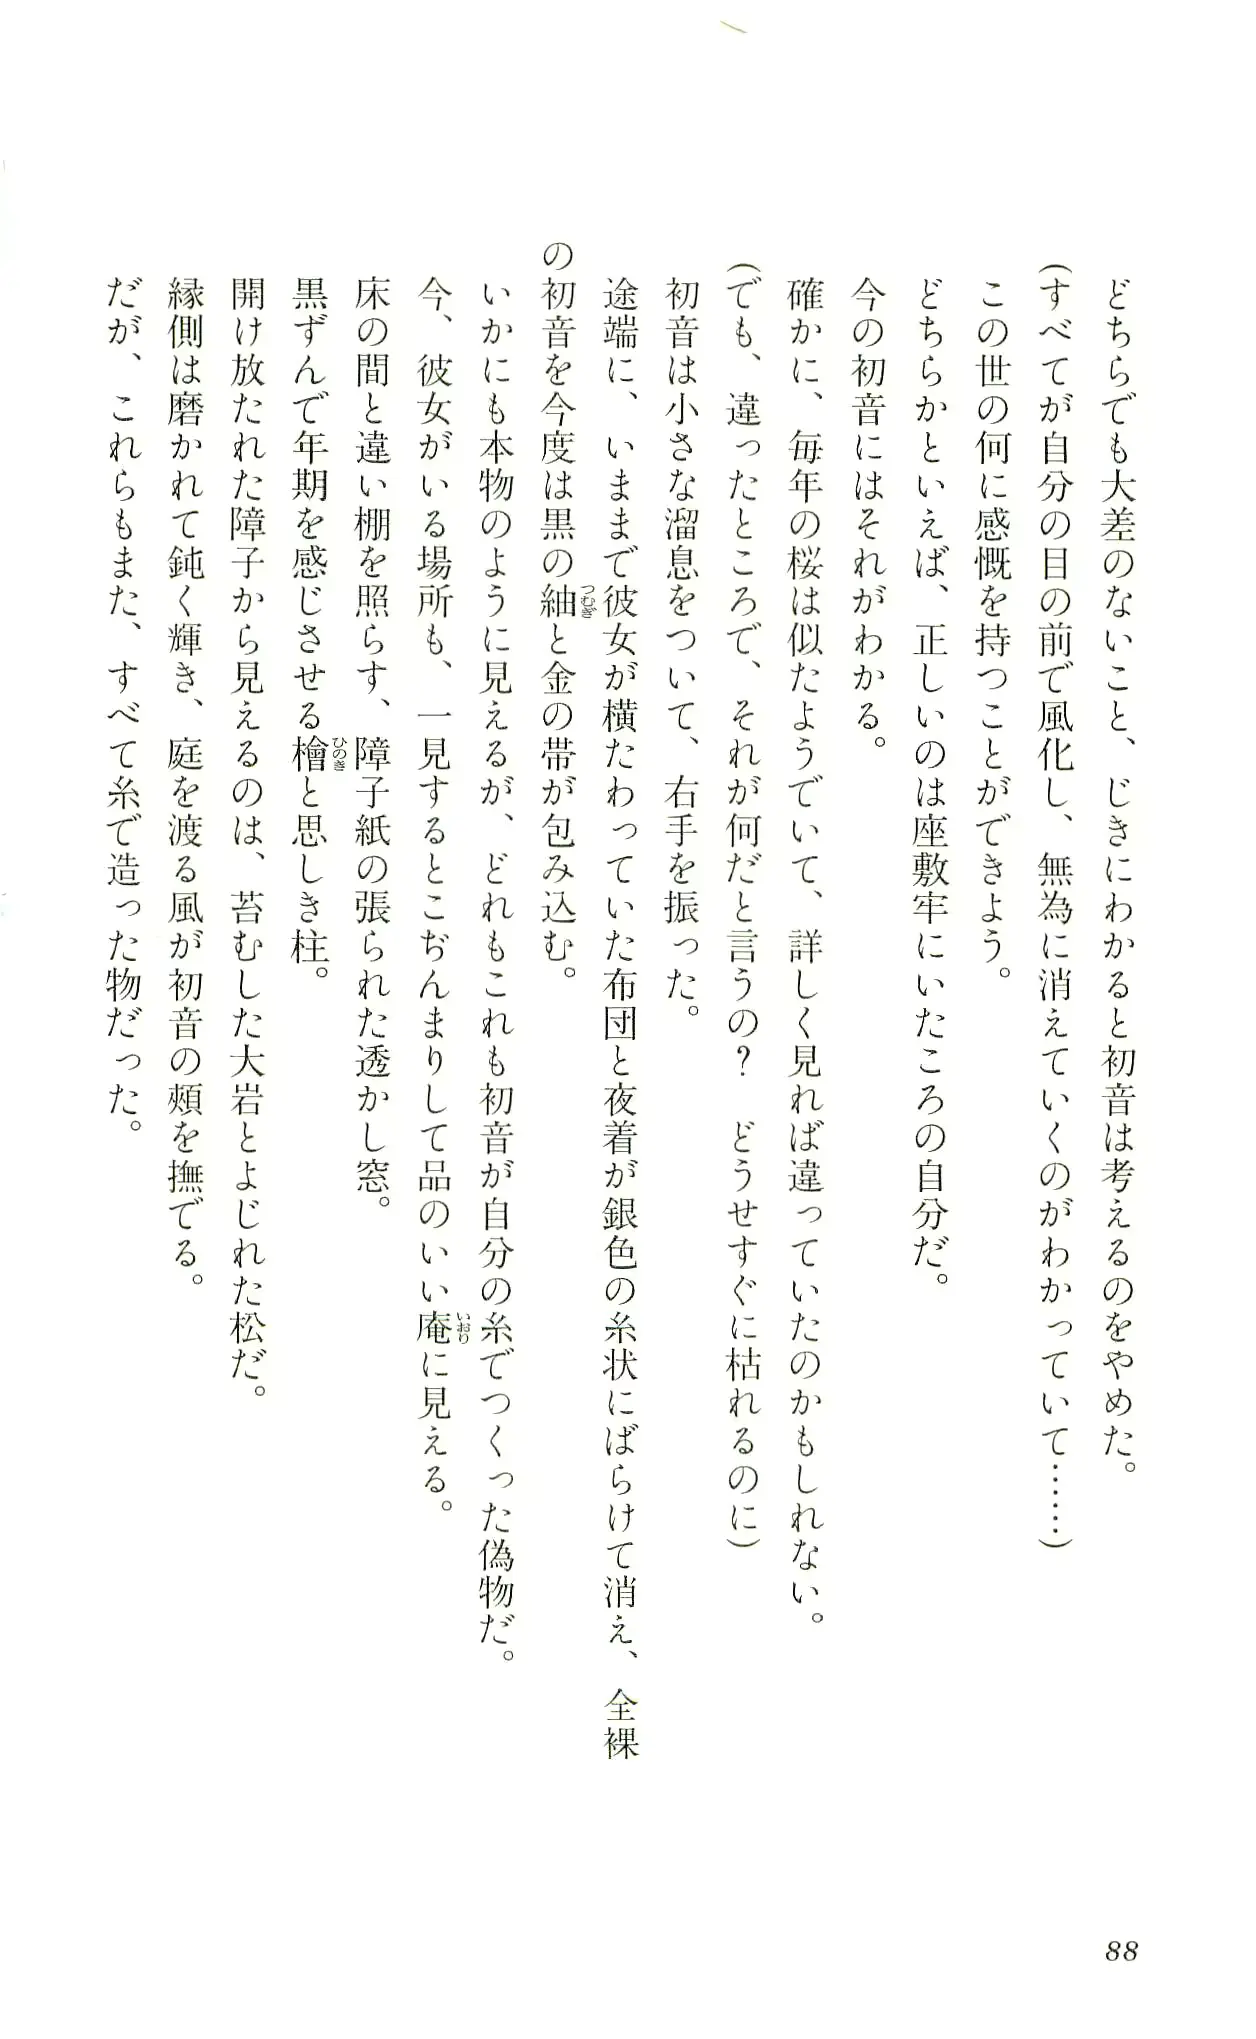 どちらでも大差のないこと、じきにわかると初音は考えるのをやめた。
(すべてが自分の目の前で風化し、無為に消えていくのがわかっていて……)
この世の何に感慨を持つことができよう。
どちらかといえば、正しいのは座敷牢にいたころの自分だ。
今の初音にはそれがわかる。
確かに、毎年の桜は似たようでいて、詳しく見れば違っていたのかもしれない。
(でも、違ったところで、それが何だと言うの?　どうせすぐに枯れるのに)
初音は小さな溜息をついて、右手を振った。
途端に、いままで彼女が横たわっていた布団と夜着が銀色の糸状にばらけて消え、全裸
の初音を今度は黒の紬つむぎと金の帯が包み込む。
いかにも本物のように見えるが、どれもこれも初音が自分の糸でつくった偽物だ。
今、彼女がいる場所も、一見するとこぢんまりして品のいい庵いおりに見える。
床の間と違い棚を照らす、障子紙の張られた透かし窓。
黒ずんで年期を感じさせる檜ひのきと思しき柱。
開け放たれた障子から見えるのは、苔むした大岩とよじれた松だ。
縁側は磨かれて鈍く輝き、庭を渡る風が初音の頬を撫でる。
だが、これらもまた、すべて糸で造った物だった。
88